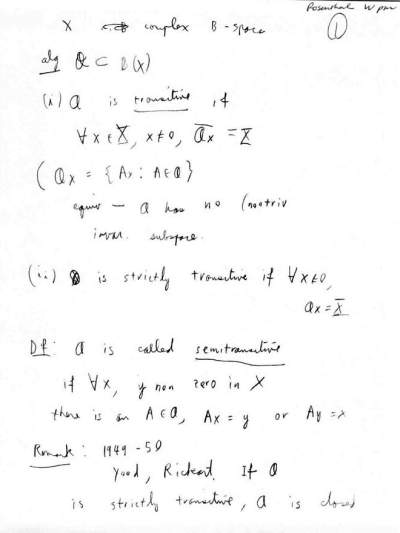 Rosenthal W pm
①
X complex B-space
alg 𝒶 ⊂ B(X)
(i) 𝒶 is transitive if
∀x∈X, x≠0, \overline{𝒶x} = X
(𝒶x = {Ax : A∈𝒶}
equiv — 𝒶 has no (nontriv
invar. subspace.
(ii) is strictly transitive if ∀x≠0,
𝒶x = X
Df: 𝒶 is called semitransitive
if ∀x, y non zero in X
there is an A∈𝒶, Ax = y or Ay = x
Remark: 1949-50
Yood, Rickart. If 𝒶
is strictly transitive, 𝒶 is closed